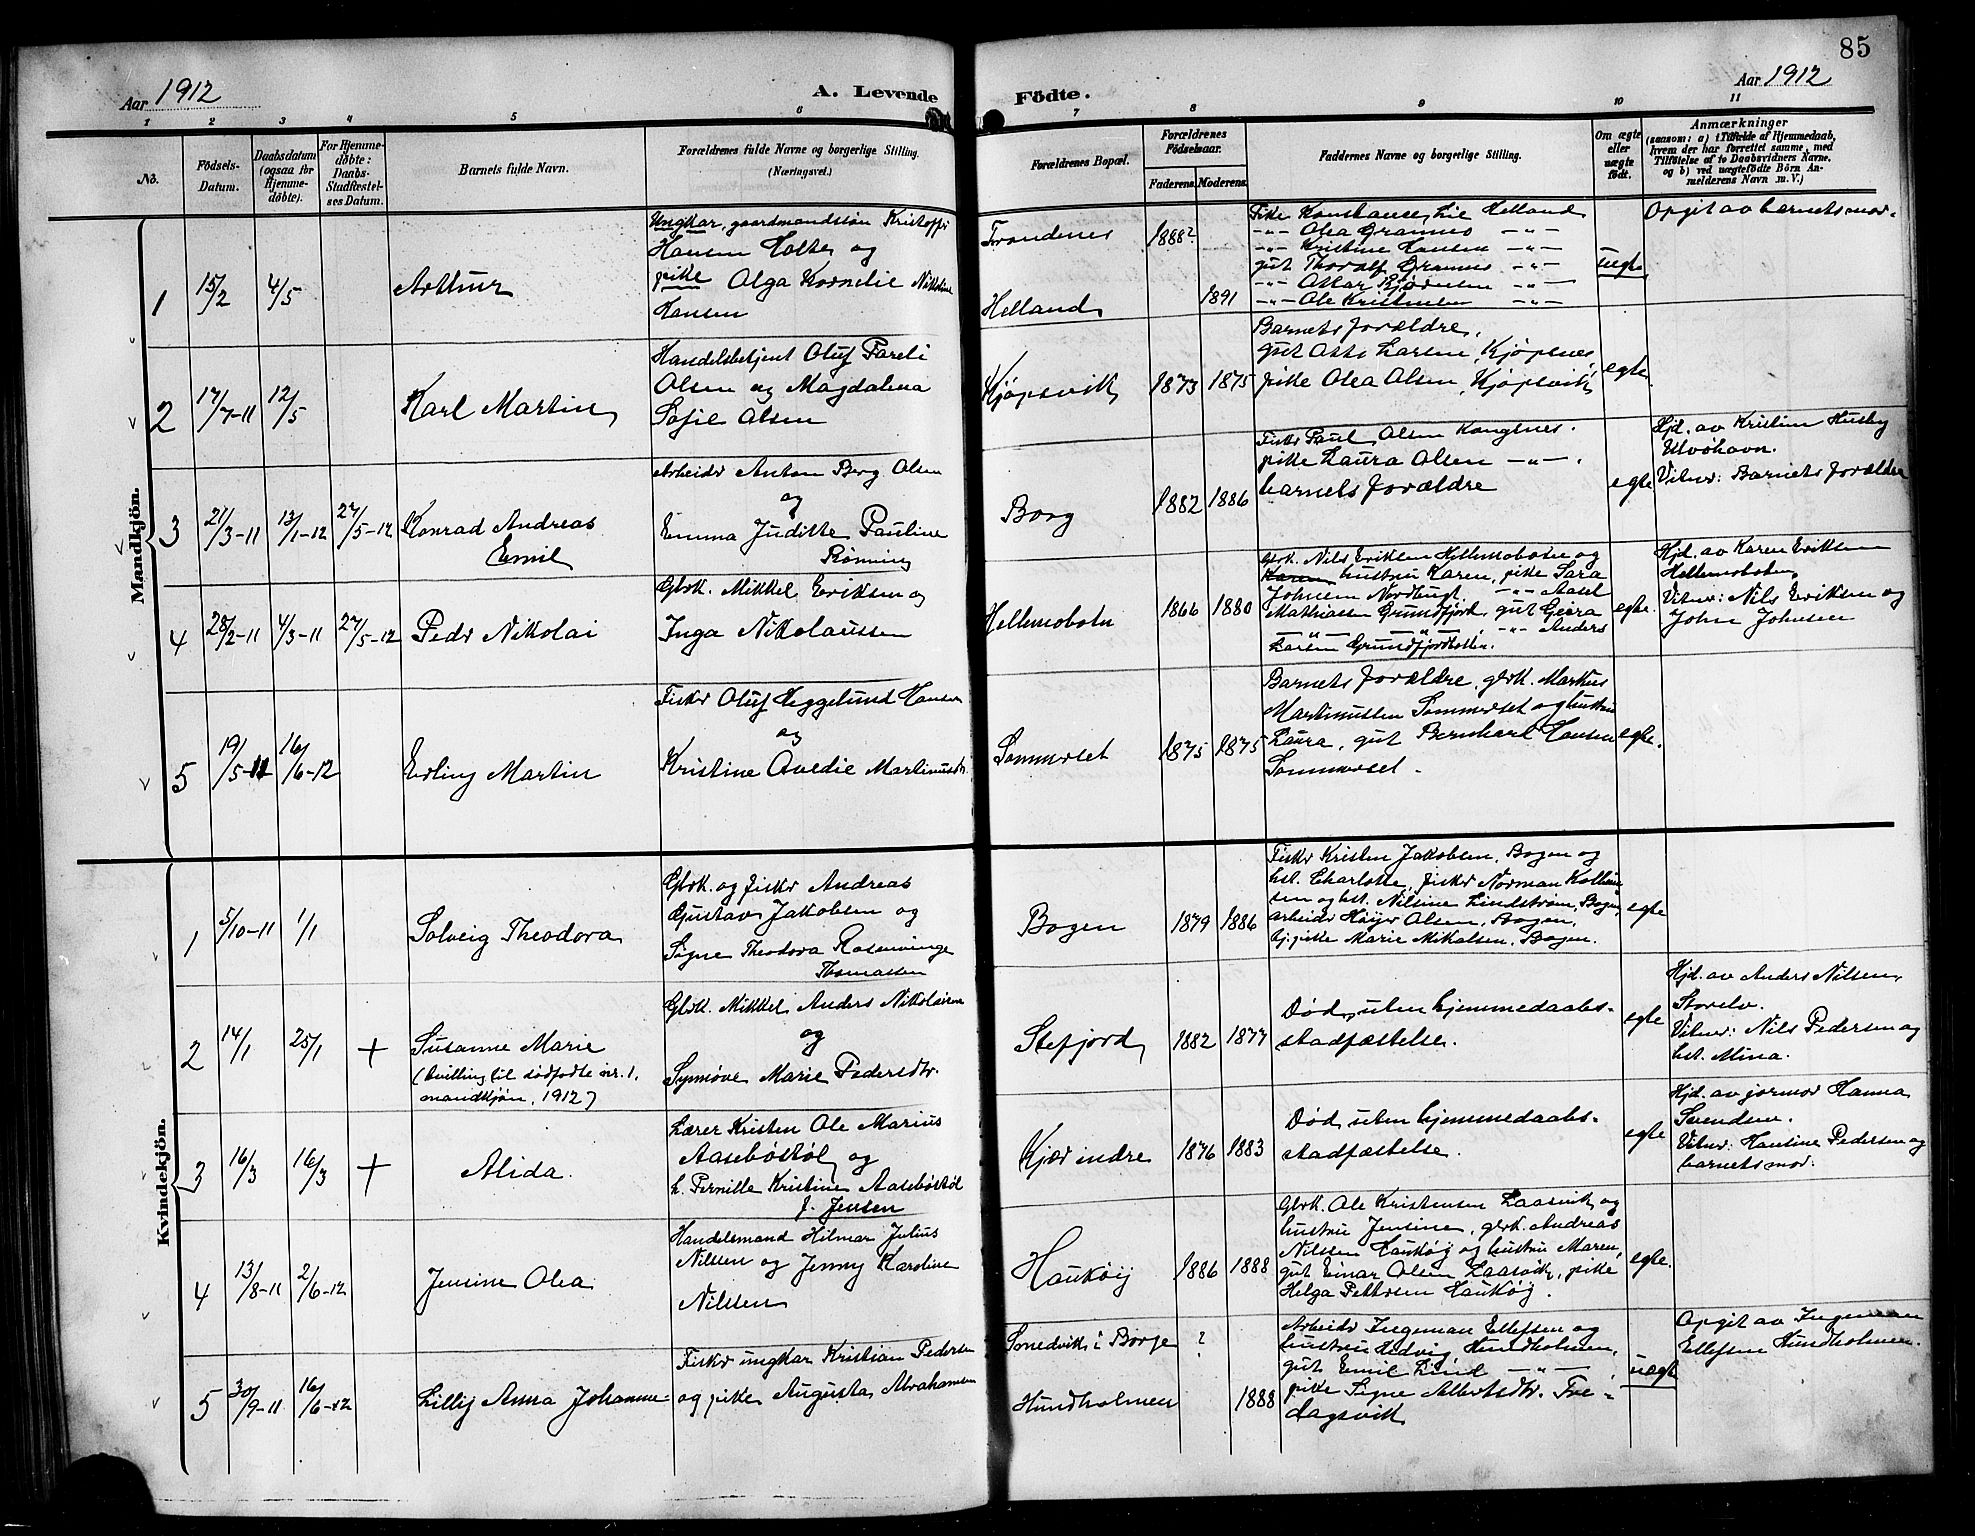 85
Aar 1912
A. Levende
Födte.
Aar 1912
1 2 3 4 5 6 7 8 9 10 11
No.
Födsels-
Datum.
Daabsdatum
(ogsaa for
Hjemme-
döbte).
For Hjemme-
döbte:
Daabs-
Stadfæstel-
ses Datum.
Barnets fulde Navn.
Forældrenes fulde Navne og borgerlige Stilling.
(Næringsvei.)
Forældrenes Bopæl.
Forældrenes
Födselsaar.
Faderens.
Moderens.
Faddernes Navne og borgerlige Stilling.
Om ægte
eller
uægte
födt.
Anmærkninger
(saasom: a) i Tilfælde af Hjemmedaab,
hvem der har forrettet samme, med
Tilföielse af to Daabsvidners Navne.
og b) ved uægtefödte Börn An-
melderens Navn m. V.)
Mandkjön.
1
15/2
4/5
Arthur
Ungkar, gaardmandssøn Kristoffer
Hansen Holte og
pike Olga Kornelie Nikoline
Hansen
Trondenes
Helland
1888?
1891
Pike Konstanse Lie Helland
-"- Olea Grannes -"-
-"- Kristine Hansen -"-
gut Thoralf Grannes -"-
-"- Ottar Bjørnsen -"-
-"- Ole Kristensen -"-
uegte
Opgit av barnets mor.
2
17/7-11
12/5
Karl Martin
Handelsbetjent Oluf Pareli
Olsen og Magdalena
Sofie Olsen
Kjøpsvik
1873
1875
Barnets forældre,
gut Otto Larsen, Kjøpsnes,
pike Olea Olsen, Kjøpsvik
egte.
3
21/3-11
13/1-12
27/5-12
Konrad Andreas
Emil
Arbeider Anton Berg Olsen
og
Emma Juditte Pauline
Rønning
Borg
1882
1886
Fisker Paul Olsen Kongsnes.
pike Laura Olsen -"-.
barnets forældre
egte
Hjd. av Kristine Husby
Ulvöhavn.
Vitner: Barnets forældre
4
28/2-11
4/3-11
27/5-12
Peder Nikolai
Gbrk. Mikkel Eriksen og
Inga Nikolaussen
Hellemobotn
1866
1880
Gbrk. Nils Eriksen Hellemobotn og
Karen hustru Karen, pike Sara
Johnsen Nordbugt. -"- Aaset
Mathiassen Grundfjord, gut Geira
-"- -"- -"- Anders
Larsen Grundfjordbotten.
egte.
Hjd. av Karen Eriksen
Hellemobotn,
Vitner: Nils Eriksen og
John Johnsen
5
19/5-11
16/6-12
Erling Martin
Fisker Oluf Heggelund Hansen
og
Kristine Avedie Martinusdtr.
Sommerset
1875
1875
Barnets forældre, gbrk. Markus
Martinussen Sommerset og hustru
Laura, gut Bernhard Hansen
Sommerset.
egte.
Kvindekjön.
1
5/10-11
1/1
Solveig Theodora
Gbrk. og fisker Andreas
Gustav Jakobsen og
Signe Theodora Rosenvinge
Thomassen
Bogen
1879
1886
Fisker Kristen Jakobsen, Bogen og
hst. Charlotte, fisker Norman Kolbein
sen og hst. Nilsine Lindstrøm, Bogen,
arbeider Høier Olsen, Bogen,
tj.pike Marie Mikalsen, Bogen.
egte
2
14/1
25/1
+
Susanne Marie
(tvilling til dødfødte nr. 1,
mandkjøn, 1912)
Gbrk. Mikkel Anders Nikolaisen
og
Synnøve Marie Pedersdtr.
Stefjord
1882
1877
Død uten hjemmedaabs-
stadfæstelse.
egte
Hjd. av Anders Nilsen,
Storelv.
Vitner: Nils Pedersen og
hst. Mina.
3
16/3
16/3
+
Alida.
Lærer Kristen Ole Marius
Aasebøstøl og
h. Pernille Kristine Aasebøstøl
f. Jensen
Kjær indre
1876
1883
Død uten hjemmedaabs-
stadfæstelse.
egte
Hjd. av jormor Hanna
Svendsen.
Vitner: Hansine Pedersen og
barnets mor.
4
13/8-11
2/6-12
Jensine Olea
Handelsmand Hilmar Julius
Nilsen og Jenny Karoline
Nilssen
Haukøy
1886
1888
Gbrk. Ole Kristensen Laasvik og
hustru Jensine, gbrk. Andreas
Nilssen Haukøy og hustru Maren,
gut Einar Olsen Laasvik, pike
Helga Pettersen Haukøy.
egte.
5
30/9-11
16/6-12
Lilly Anna Johanne
Fisker ungkar Kristian Pedersen
og pike Augusta Abrahamsen
Sonedvik i Borge
Hundholmen
?
1888
Arbeider Ingeman Ellefsen og
hustru Hedvig Hundholmen,
gut Emil Lind -"-
pike Signe Albertsdtr. Tre-
dagsvik
uegte
Opgit av Ingeman
Ellefsen Hundholmen.